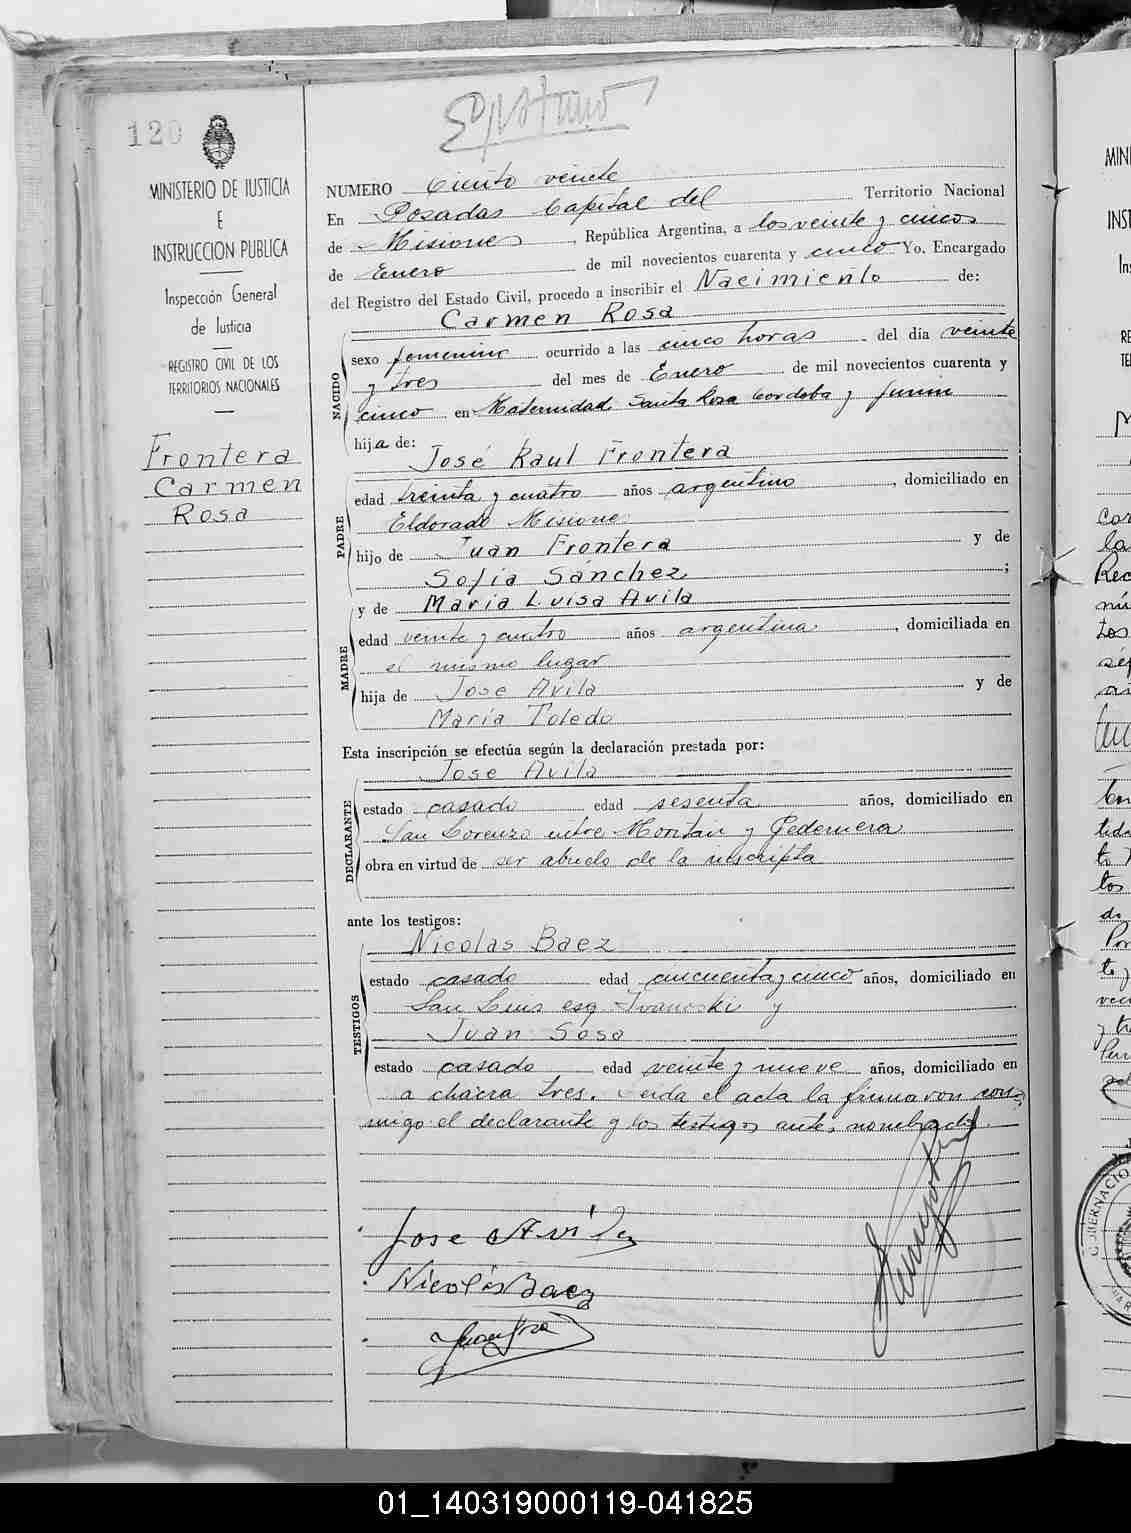 120
MINISTERIO DE JUSTICIA
E
INSTRUCCION PUBLICA
Inspección General
de Justicia
REGISTRO CIVIL DE LOS
TERRITORIOS NACIONALES
Frontera
Carmen
Rosa
NUMERO Ciento veinte
En Posadas Capital del Territorio Nacional
de Misiones, República Argentina, a los veinte y cinco
de Enero de mil novecientos cuarenta y cinco Yo, Encargado
del Registro del Estado Civil, procedo a inscribir el Nacimiento de:
Carmen Rosa
NACIDO
sexo femenino ocurrido a las cinco horas del día veinte
y tres del mes de Enero de mil novecientos cuarenta y
cinco en Maternidad Santa Rosa Cordoba y Junin
hija de:
José Raul Frontera
PADRE
edad treinta y cuatro años argentino, domiciliado en
Eldorado Misiones
hijo de Juan Frontera y de
Sofia Sánchez;
y de Maria Luisa Avila
MADRE
edad veinte y cuatro años argentina, domiciliada en
el mismo lugar
hija de Jose Avila y de
Maria Toledo
Esta inscripción se efectúa según la declaración prestada por:
Jose Avila
DECLARANTE
estado casado edad sesenta años, domiciliado en
San Lorenzo entre y
obra en virtud de ser abuelo de la inscripta
ante los testigos:
Nicolas Baez
TESTIGOS
estado casado edad cincuenta y cinco años, domiciliado en
San Luis esq Ivanoski y
Juan Sosa
estado casado edad veinte y nueve años, domiciliado en
a chacra tres. Leida el acta la firmaron con-
migo el declarante y los testigos antes nombrados.
Jose Avila
Nicolás Baez
Juan Sosa
01_140319000119-041825